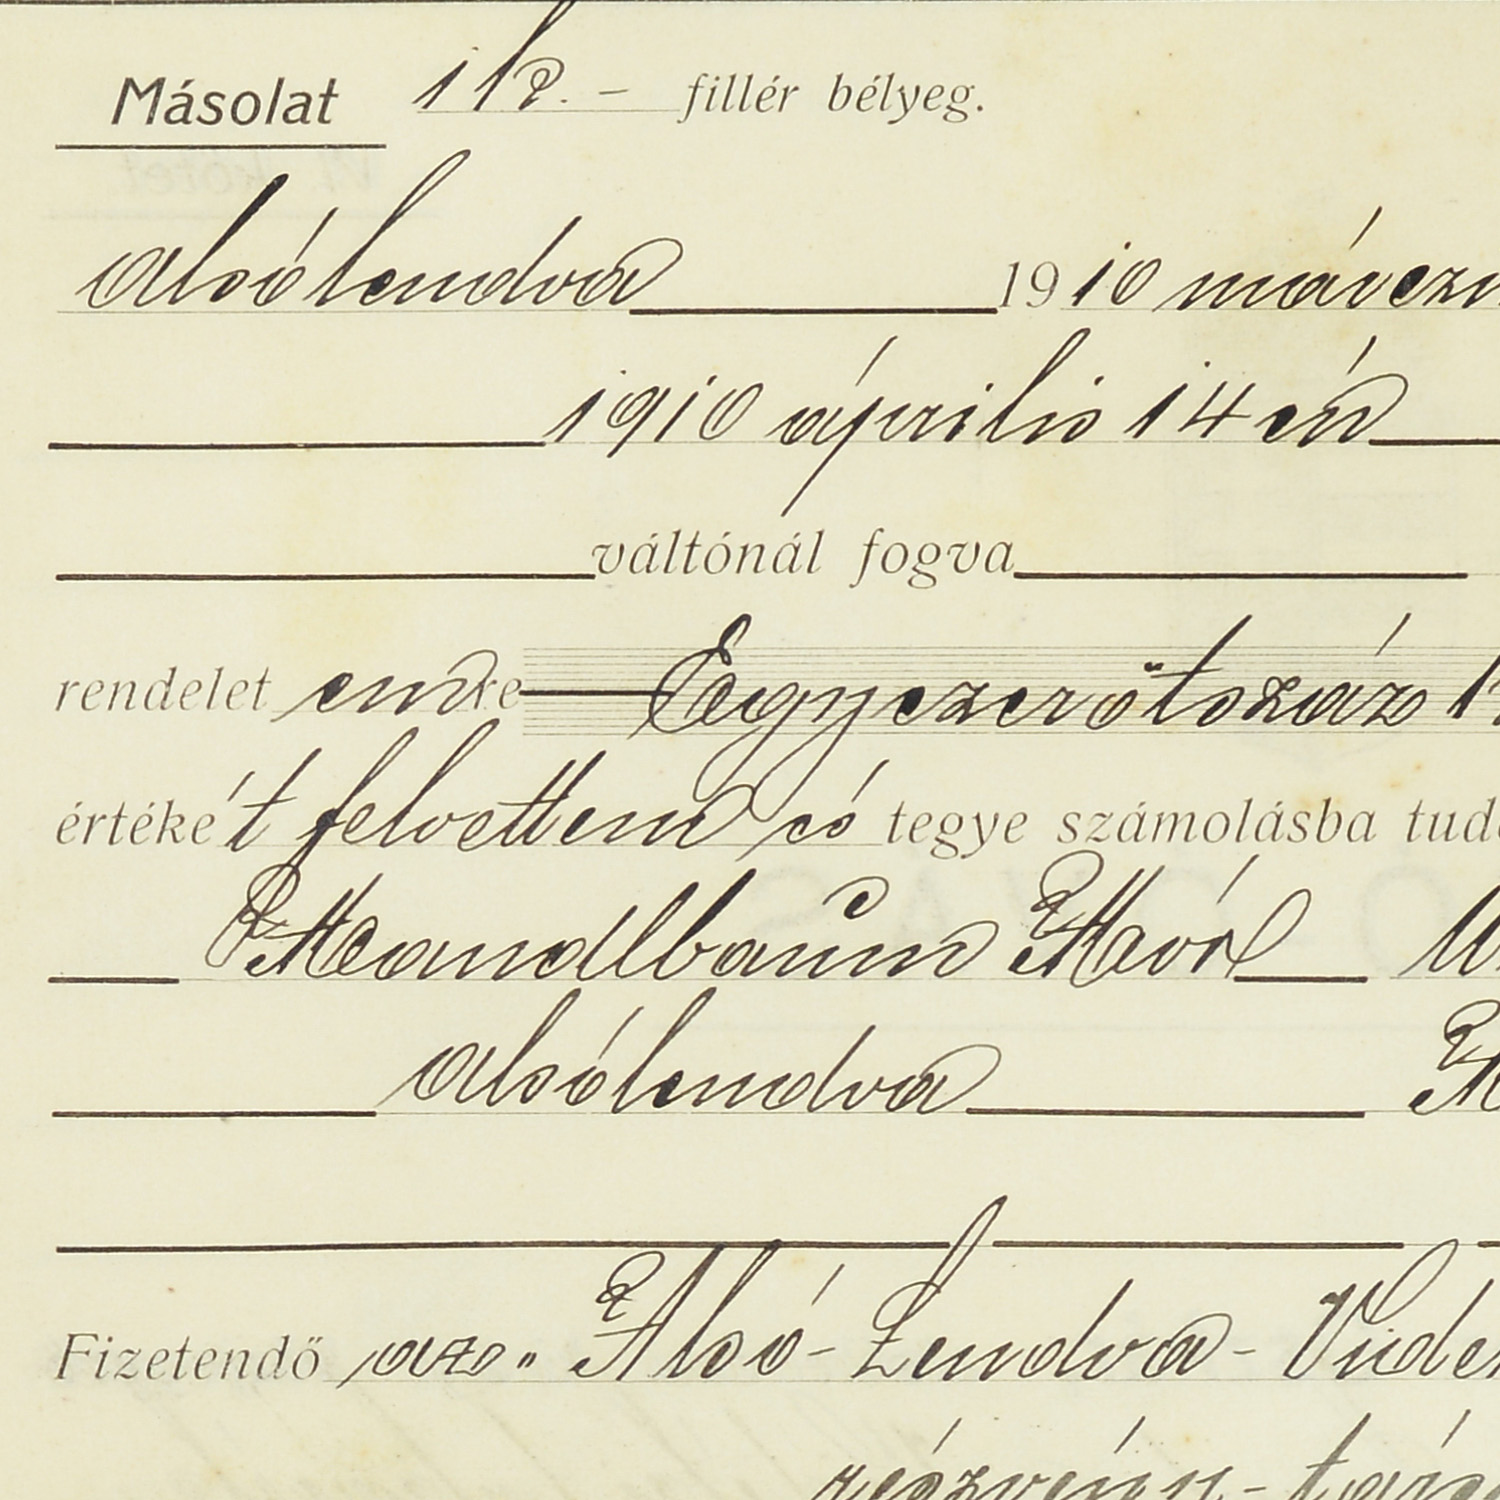 Másolat 1 K. – fillér bélyeg.
Alsólendva 1910
1910 április 14 én
váltónál fogva
rendelet en re Egyezerötszáz
értéke't felvettem és tegye számolásba
Mandlbaum Mór
Alsólendva
Fizetendő az „ Alsó-Lendva-
részvény-